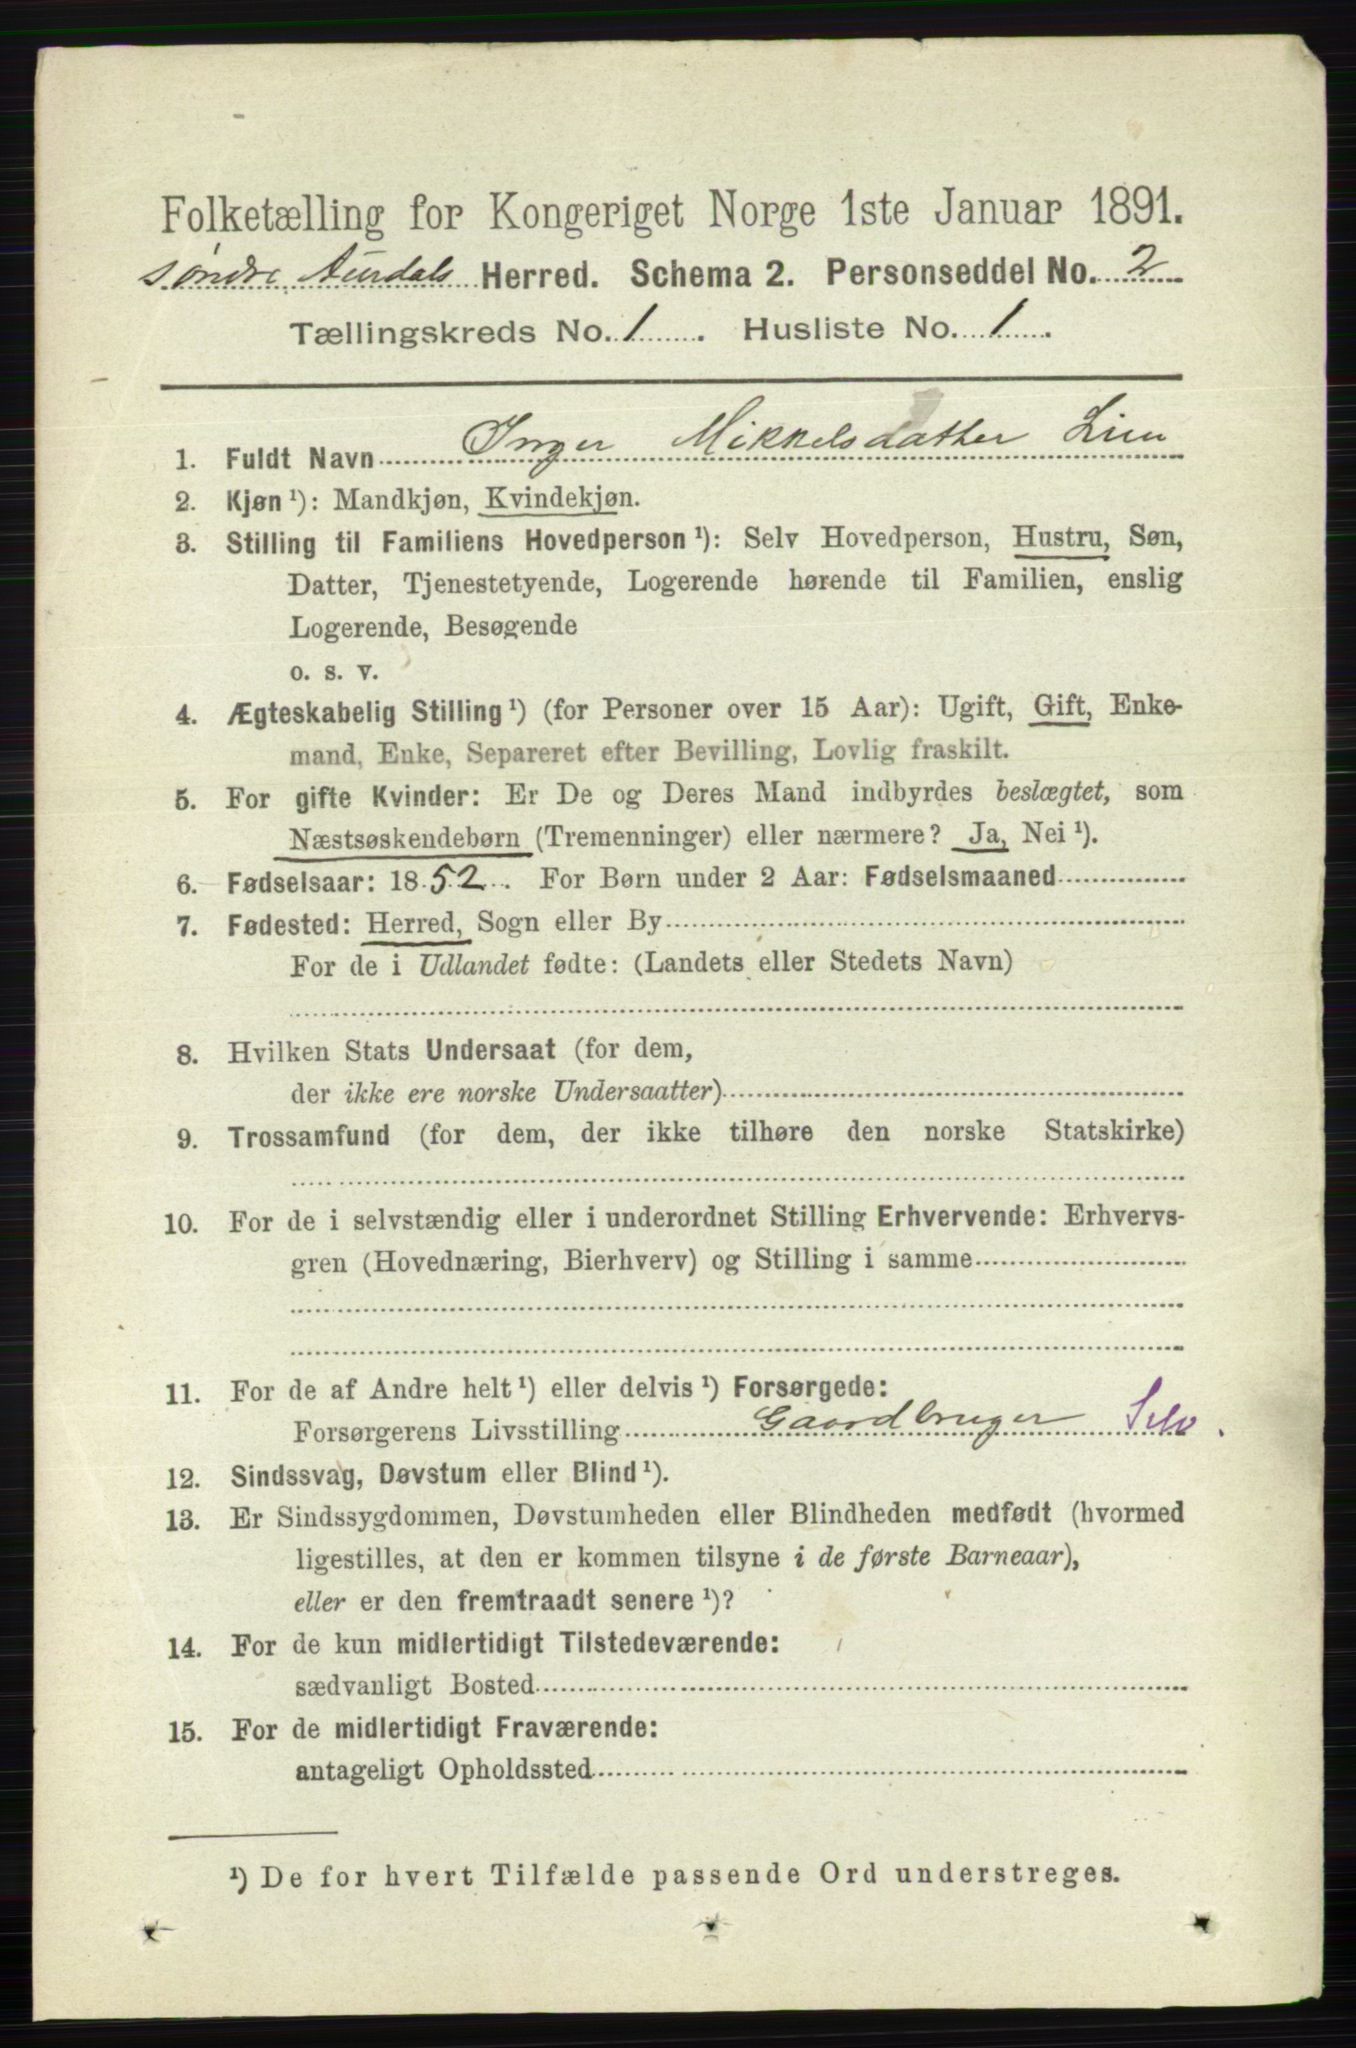 Folketælling for Kongeriget Norge 1ste Januar 1891.
Søndre Aurdals Herred. Schema 2. Personseddel No. 2
Tællingskreds No. 1. Husliste No. 1.
1. Fuldt Navn Inger Mikkelsdatter Lien
2. Kjøn ¹): Mandkjøn, Kvindekjøn.
3. Stilling til Familiens Hovedperson ¹): Selv Hovedperson, Hustru, Søn,
Datter, Tjenestetyende, Logerende hørende til Familien, enslig
Logerende, Besøgende
o. s. v.
4. Ægteskabelig Stilling ¹) (for Personer over 15 Aar): Ugift, Gift, Enke-
mand, Enke, Separeret efter Bevilling, Lovlig fraskilt.
5. For gifte Kvinder: Er De og Deres Mand indbyrdes beslægtet, som
Næstsøskendebørn (Tremenninger) eller nærmere? Ja, Nei ¹).
6. Fødselsaar: 1852. For Børn under 2 Aar: Fødselsmaaned
7. Fødested: Herred, Sogn eller By
For de i Udlandet fødte: (Landets eller Stedets Navn)
8. Hvilken Stats Undersaat (for dem,
der ikke ere norske Undersaatter)
9. Trossamfund (for dem, der ikke tilhøre den norske Statskirke)
10. For de i selvstændig eller i underordnet Stilling Erhvervende: Erhvervs-
gren (Hovednæring, Bierhverv) og Stilling i samme
11. For de af Andre helt ¹) eller delvis ¹) Forsørgede:
Forsørgerens Livsstilling Gaardbruger Selv.
12. Sindssvag, Døvstum eller Blind ¹).
13. Er Sindssygdommen, Døvstumheden eller Blindheden medfødt (hvormed
ligestilles, at den er kommen tilsyne i de første Barneaar),
eller er den fremtraadt senere ¹)?
14. For de kun midlertidigt Tilstedeværende:
sædvanligt Bosted
15. For de midlertidigt Fraværende:
antageligt Opholdssted
¹) De for hvert Tilfælde passende Ord understreges.